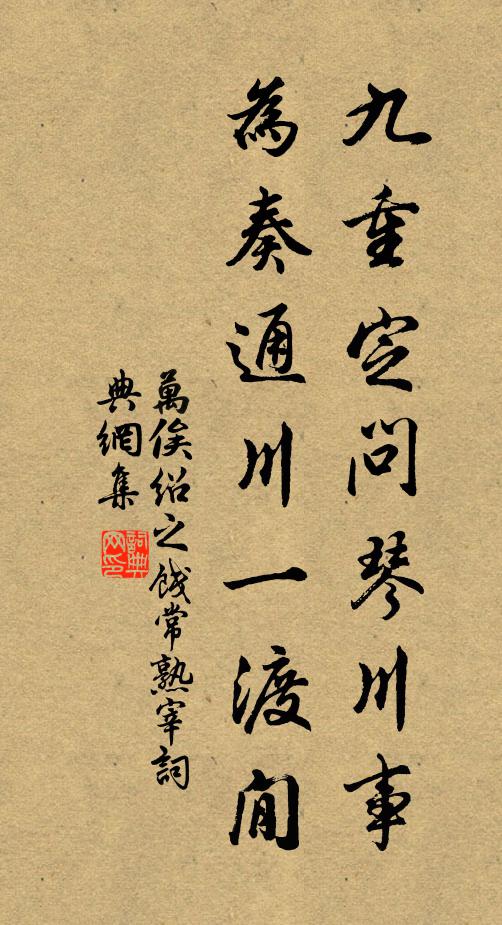 九重定问琴川事
為奏通川一渡間
萬俟绍之餞常熟宰詞
典網集
詞典网印